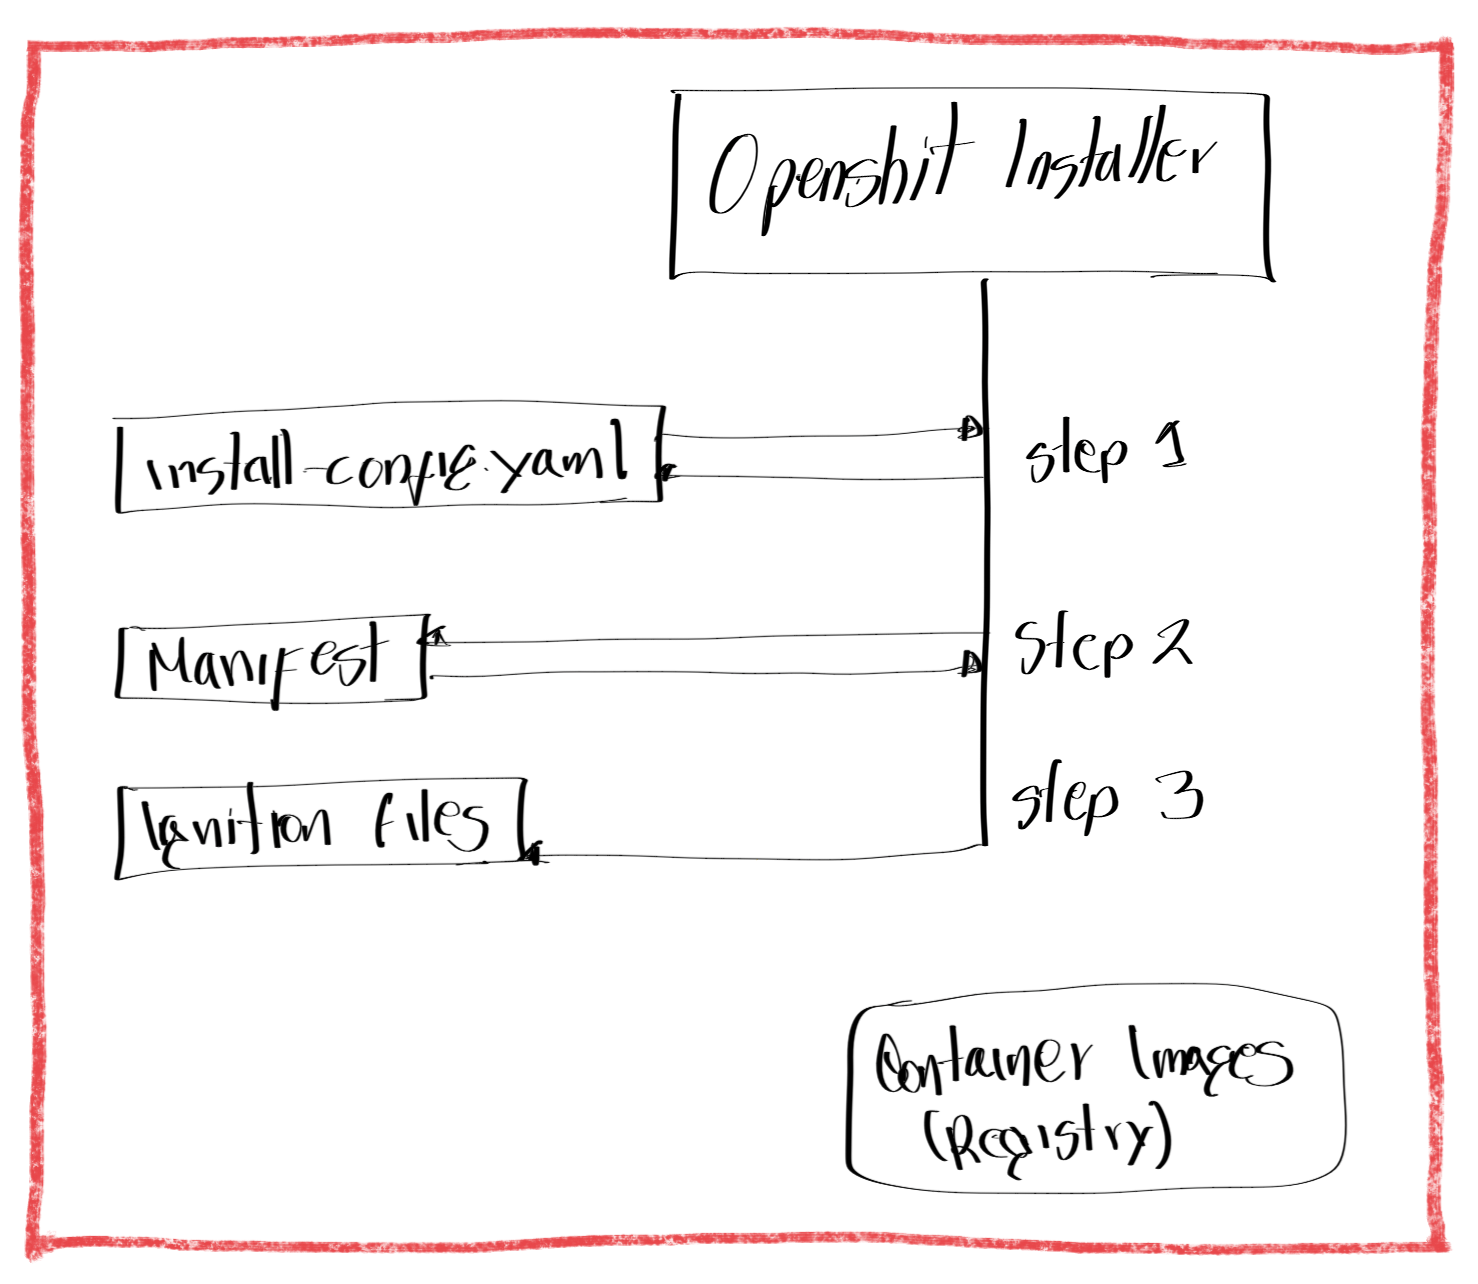 Openshit Installer
install-config.yaml
step 1
Manifest
Step 2
Ignition files
step 3
Container Images
(Registry)